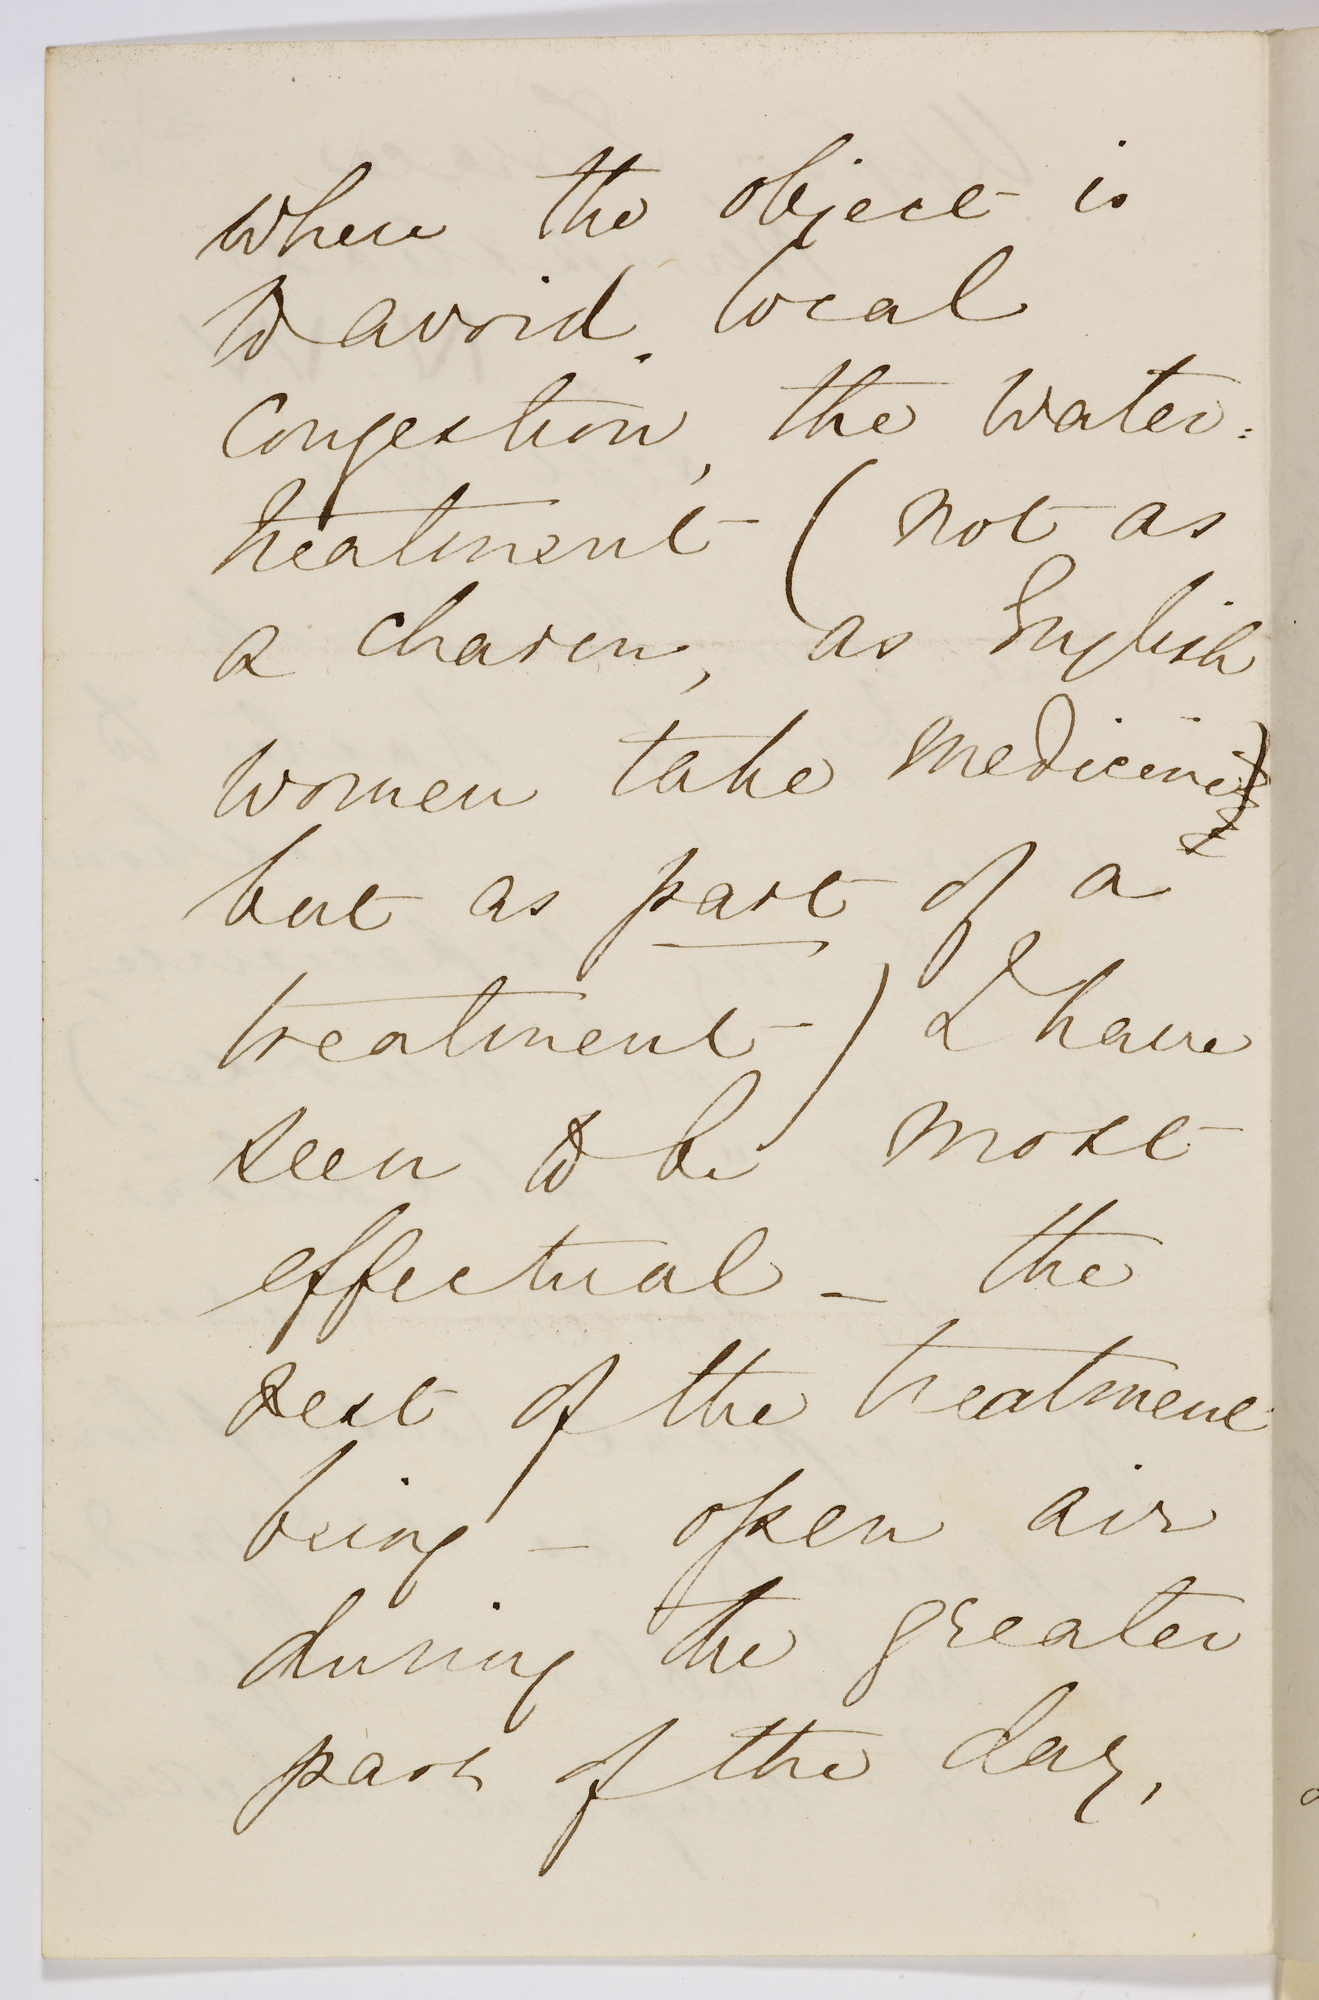 where the object is
to avoid local
congestion, the water:
treatment (not as
a charm, as English
women take medicine)
but as part of a
treatment) I have
seen to be most
effectual _ the
rest of the treatment
being _ open air
during the greater
part of the day,